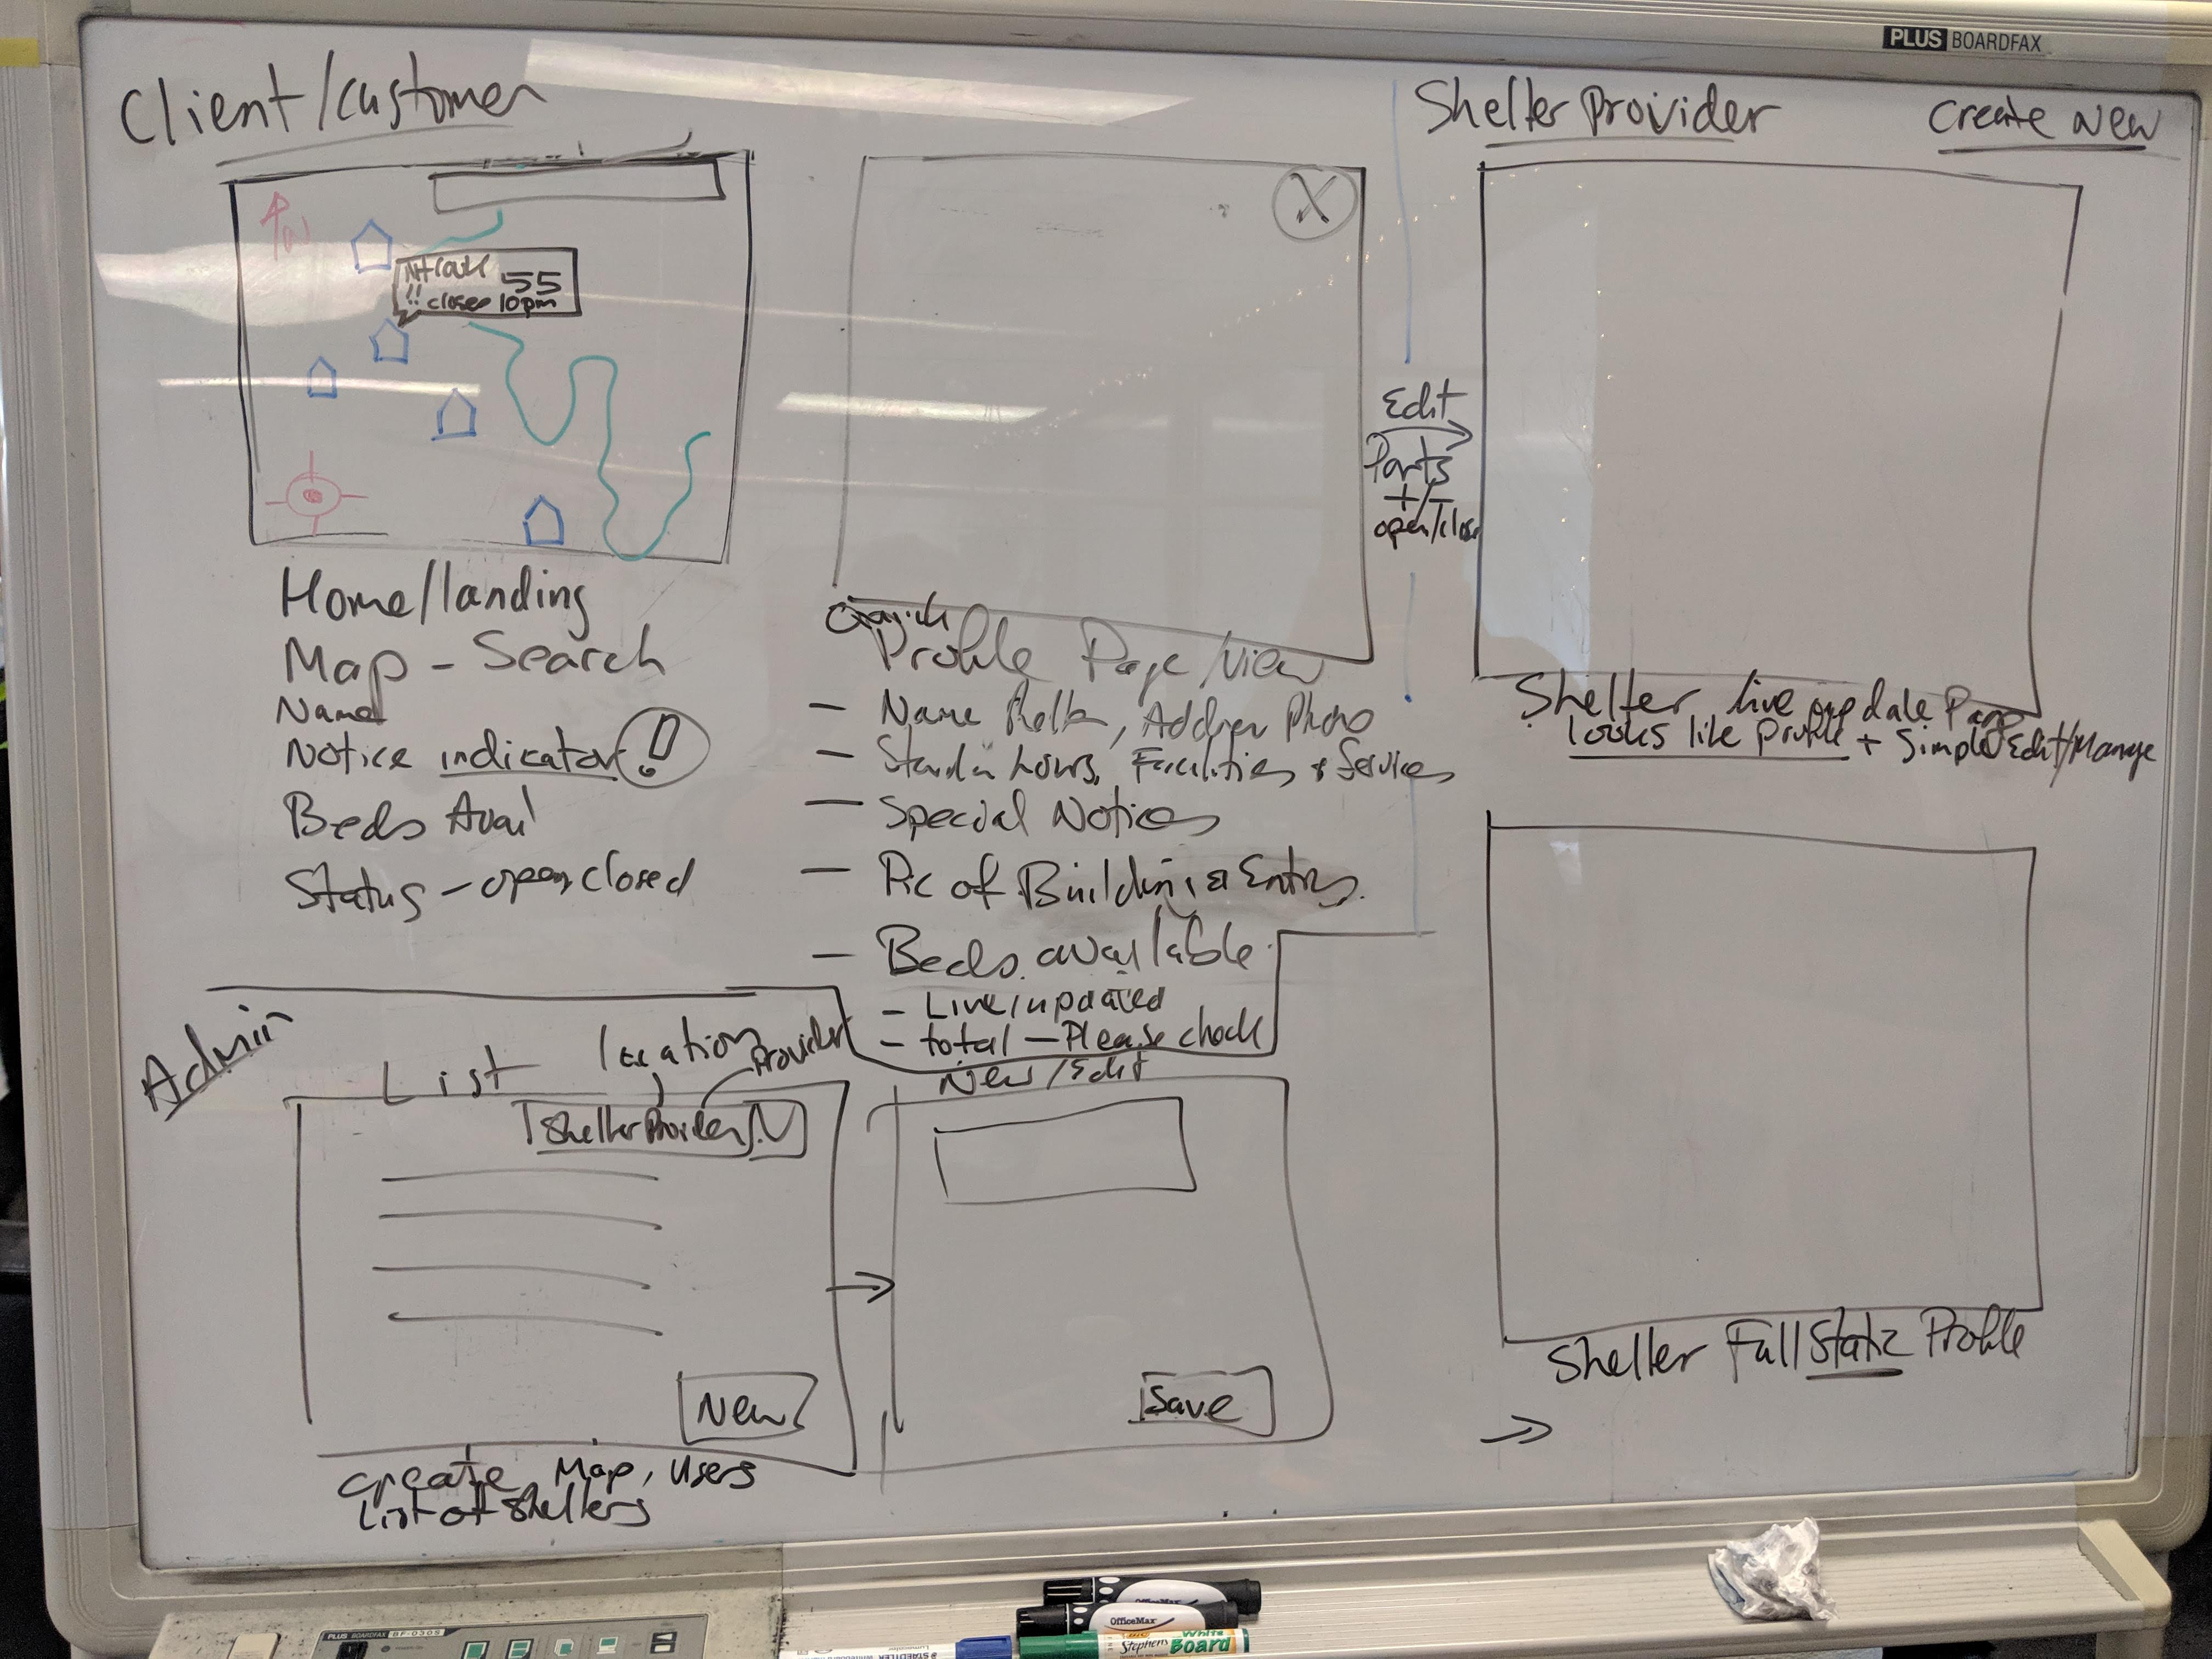 PLUS BOARDFAX
Client/customer
55
!! closes 10pm
Home/landing
Map - Search
Name
Notice indicator !
Beds Avail
Status - open, closed
X
Profile Page/View
- Name Address Phone
- hours, Facilities & Services
- Special Notices
- Pic of Building & Entry.
- Beds available
- Live/updated
- total - Please check
Edit
Parts
+/-
open/close
Shelter Provider
Create New
Shelter live update Page
looks like profile + Simple Edit/Manage
Shelter Full Static Profile
Admin
List
location
Provider
Shelter Provider
New
create Map, Users
List of Shelters
New/Edit
Save
PLUS BOARDFAX BF-030S
OfficeMax
OfficeMax
STAEDTLER
Lumocolor
Stephens White Board